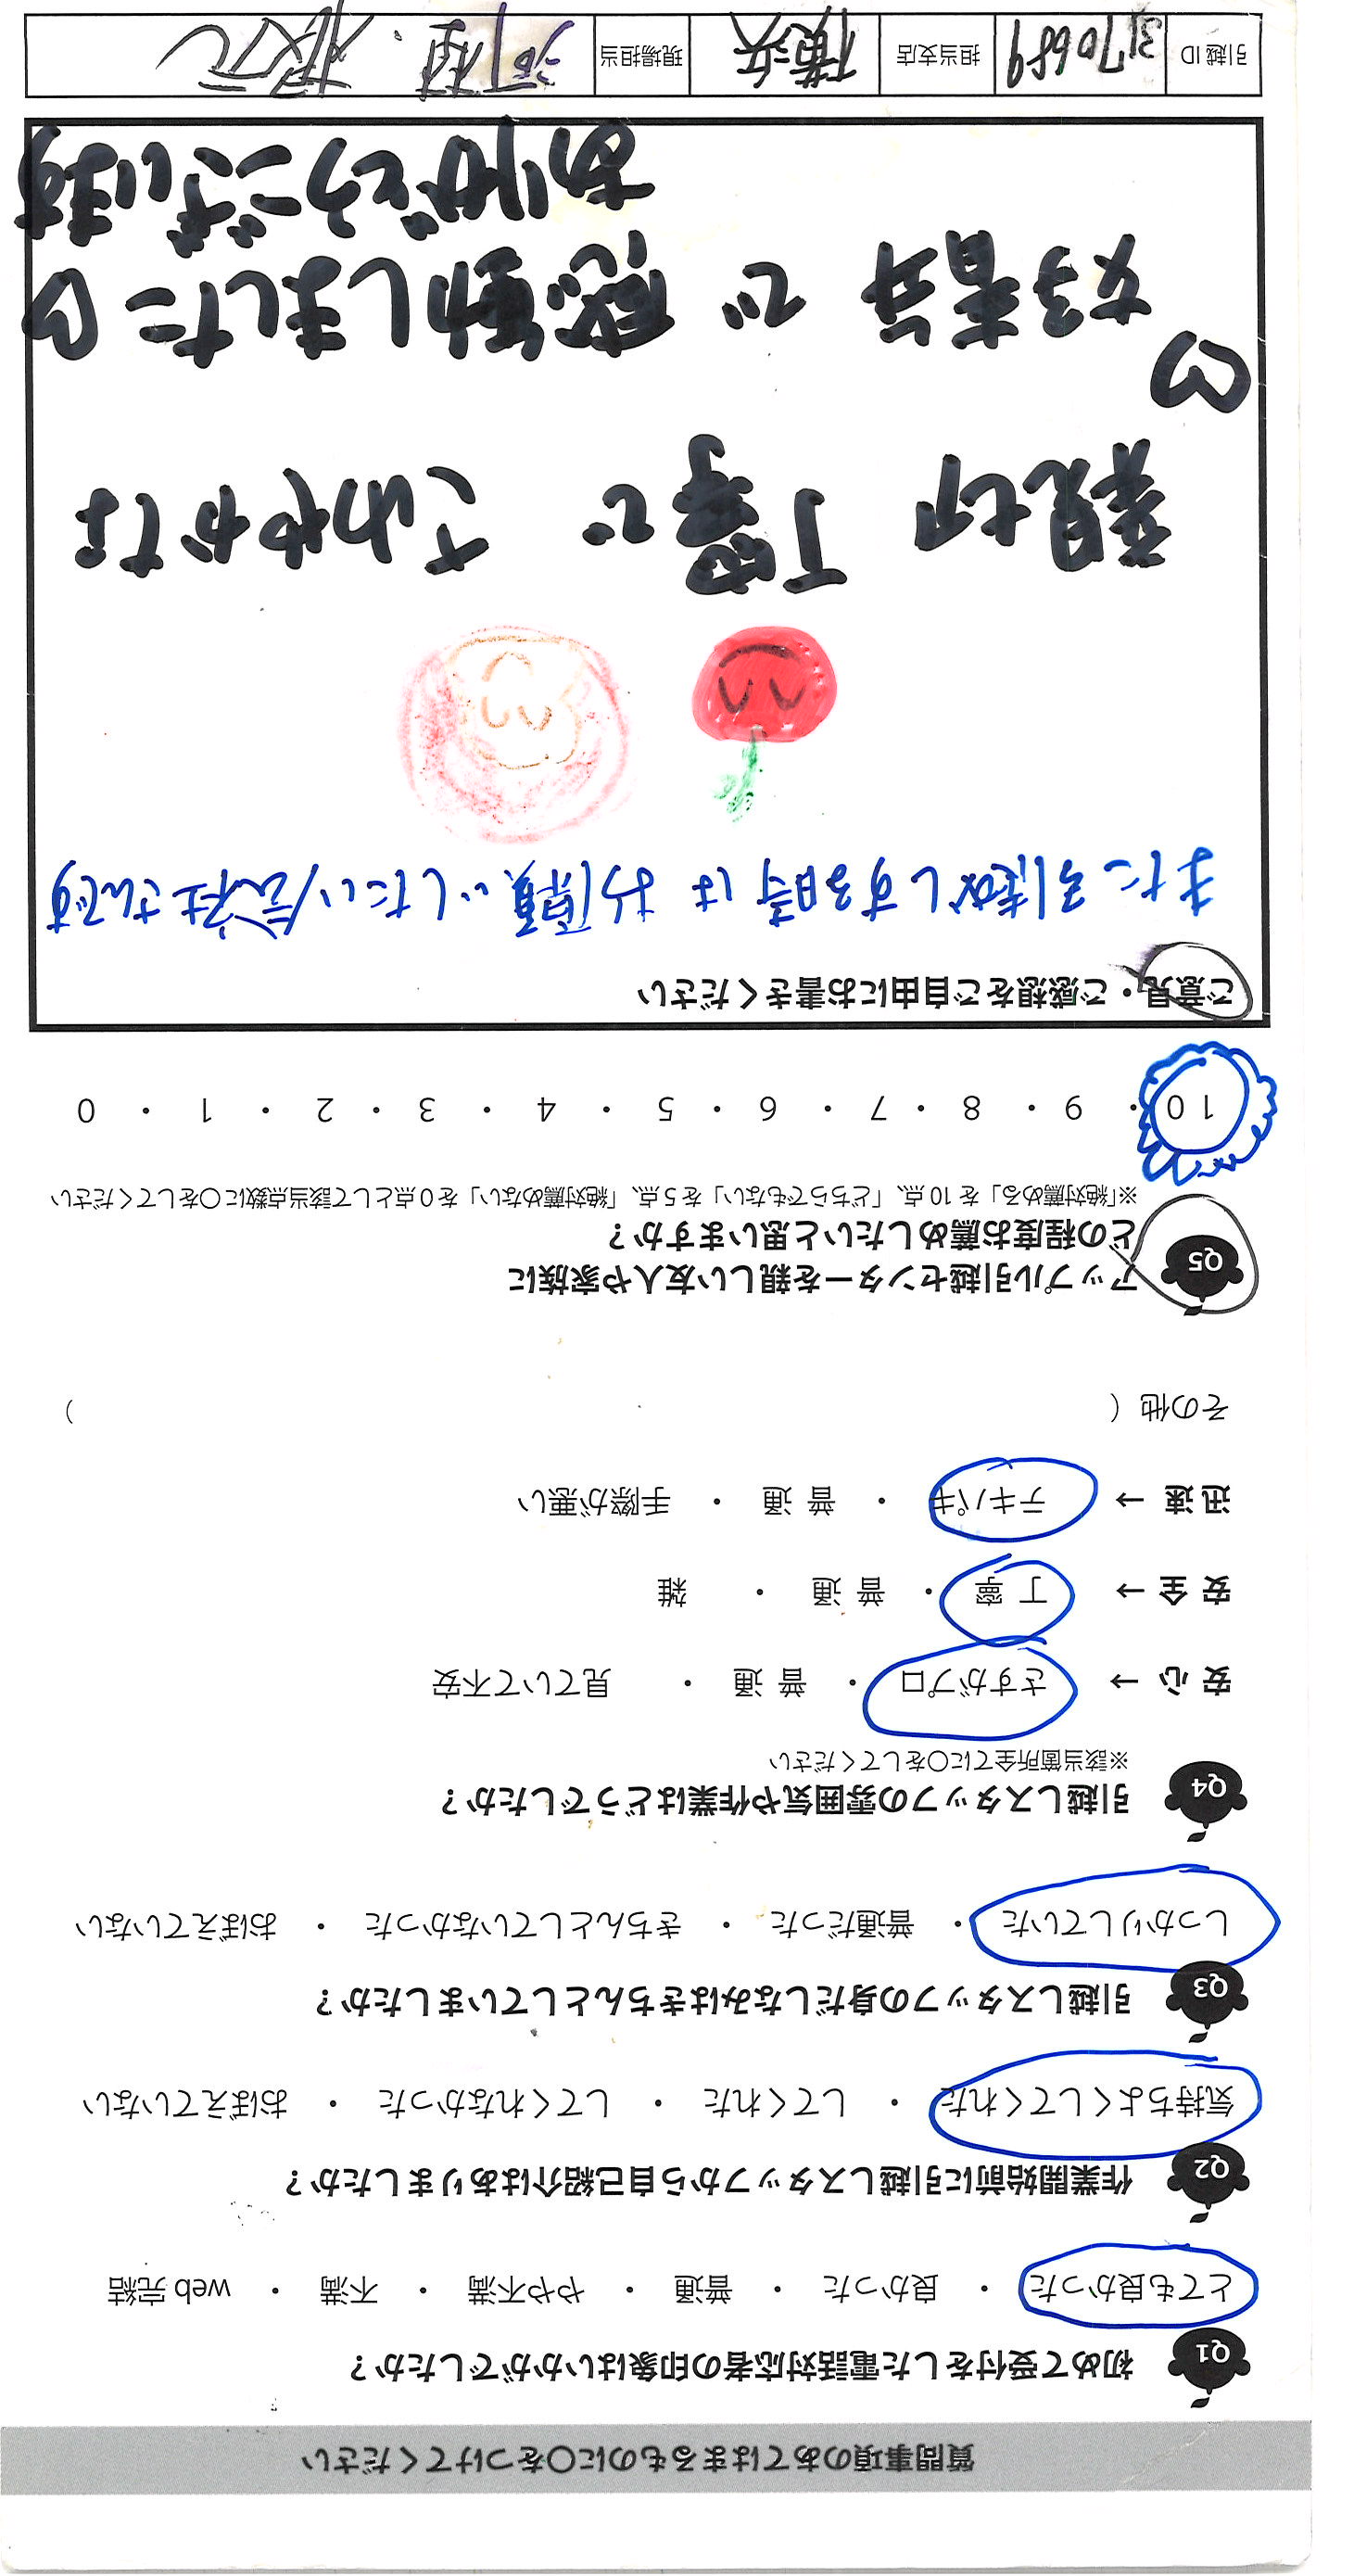 質問事項のあてはまるものに〇をつけてください
Q1 初めて受付をした電話対応者の印象はいかがでしたか？
とても良かった ・ 良かった ・ 普通 ・ やや不満 ・ 不満 ・ web 完結
Q2 作業開始前に引越しスタッフから自己紹介はありましたか？
気持ちよくしてくれた ・ してくれた ・ してくれなかった ・ おぼえていない
Q3 引越しスタッフの身だしなみはきちんとしていましたか？
しっかりしていた ・ 普通だった ・ きちんとしていなかった ・ おぼえていない
Q4 引越しスタッフの雰囲気や作業はどうでしたか？
※該当箇所全てに〇をしてください
安心 → さすがプロ ・ 普通 ・ 見ていて不安
安全 → 丁寧 ・ 普通 ・ 雑
迅速 → テキパキ ・ 普通 ・ 手際が悪い
その他（ ）
Q5 アップル引越センターを親しい友人や家族に
どの程度お薦めしたいと思いますか？
※「絶対薦める」を 10 点、「どちらでもない」を 5 点、「絶対薦めない」を 0 点として該当点数に〇をしてください
10 ・ 9 ・ 8 ・ 7 ・ 6 ・ 5 ・ 4 ・ 3 ・ 2 ・ 1 ・ 0
ご意見・ご感想をご自由にお書きください
また引越しする時は お願いしたい会社さんです
親切 丁寧で さわやかな
好青年 で 感動しました
ありがとうございます
引越 ID 3170689 担当支店 横浜 現場担当